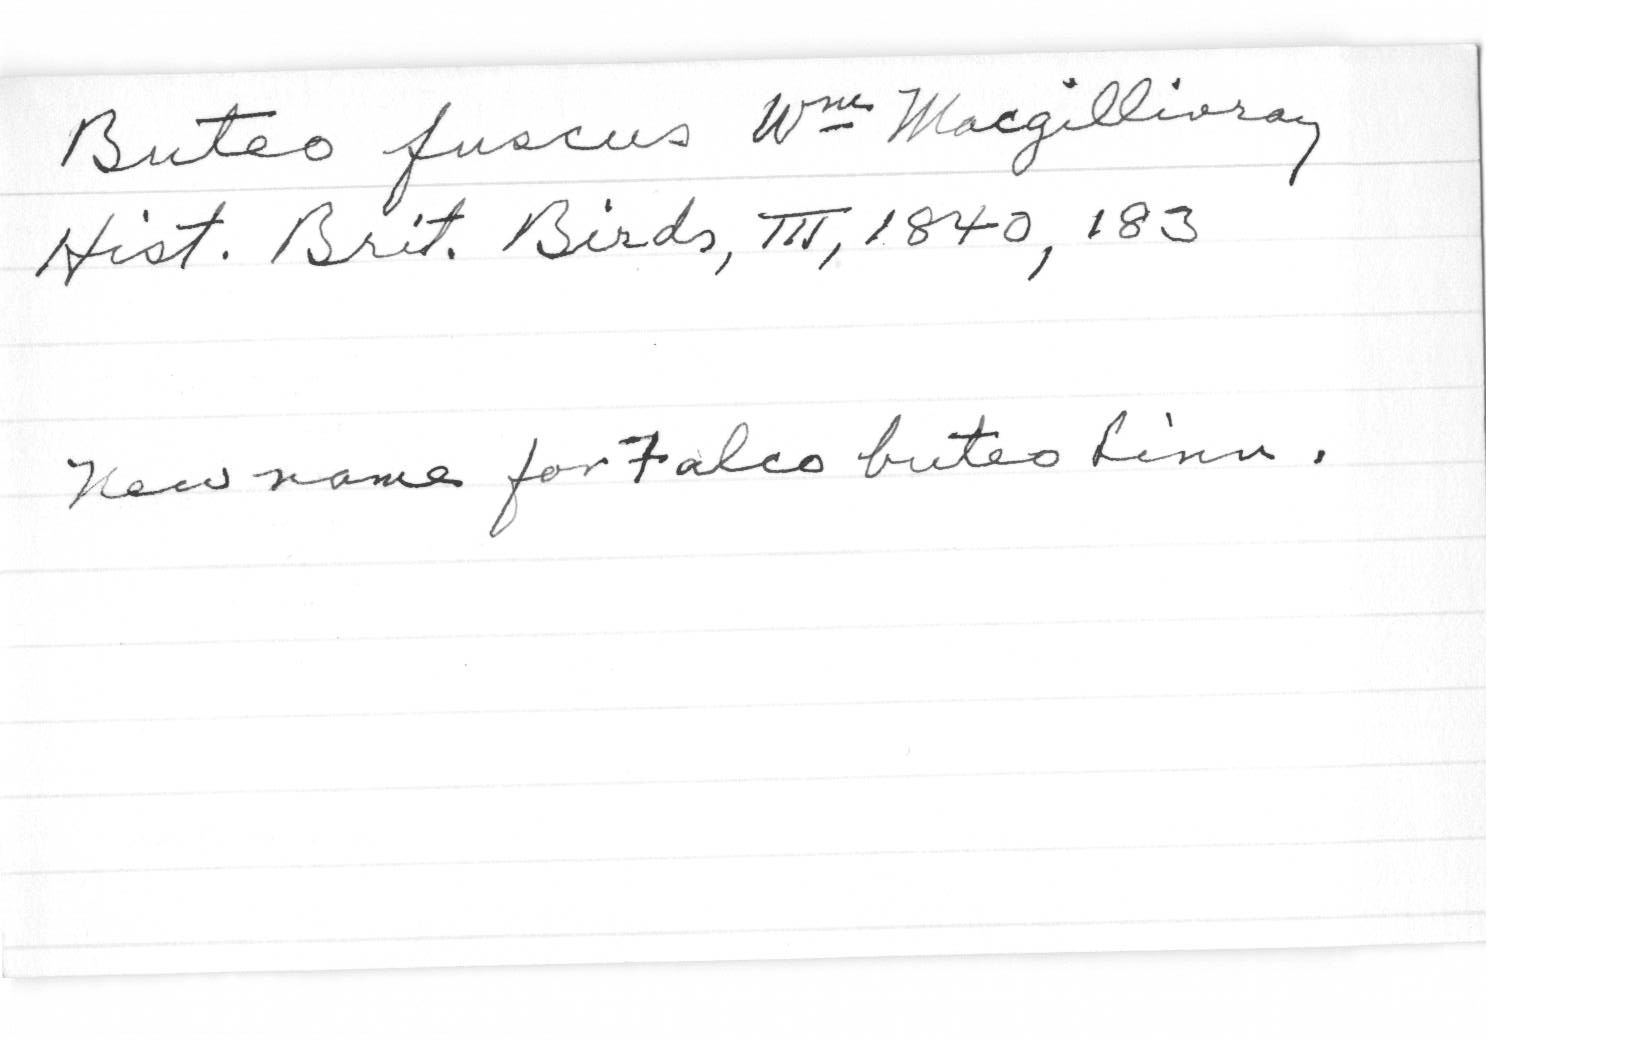 Buteo fuscus Wm Macgillivray
Hist. Brit. Birds, III, 1840, 183
New name for Falco buteo Linn.